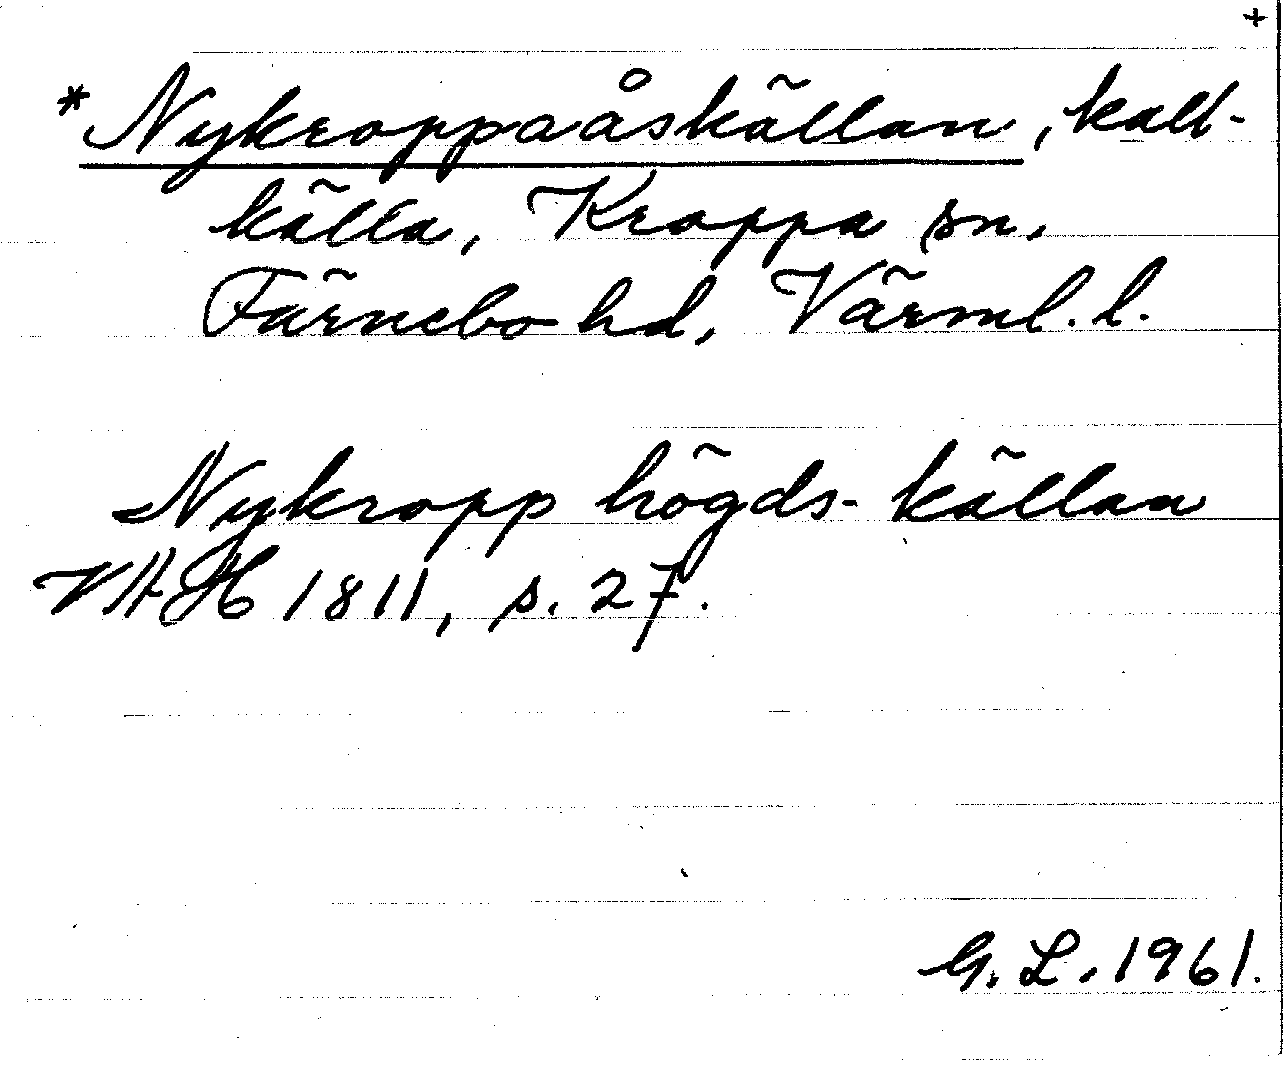 +
*Nykroppaåskällan, kall-
källa, Kroppa sn,
Färnebo hd, Värml. l.
Nykropp högds-källan
VAH 1811, s. 27.
G. L. 1961.